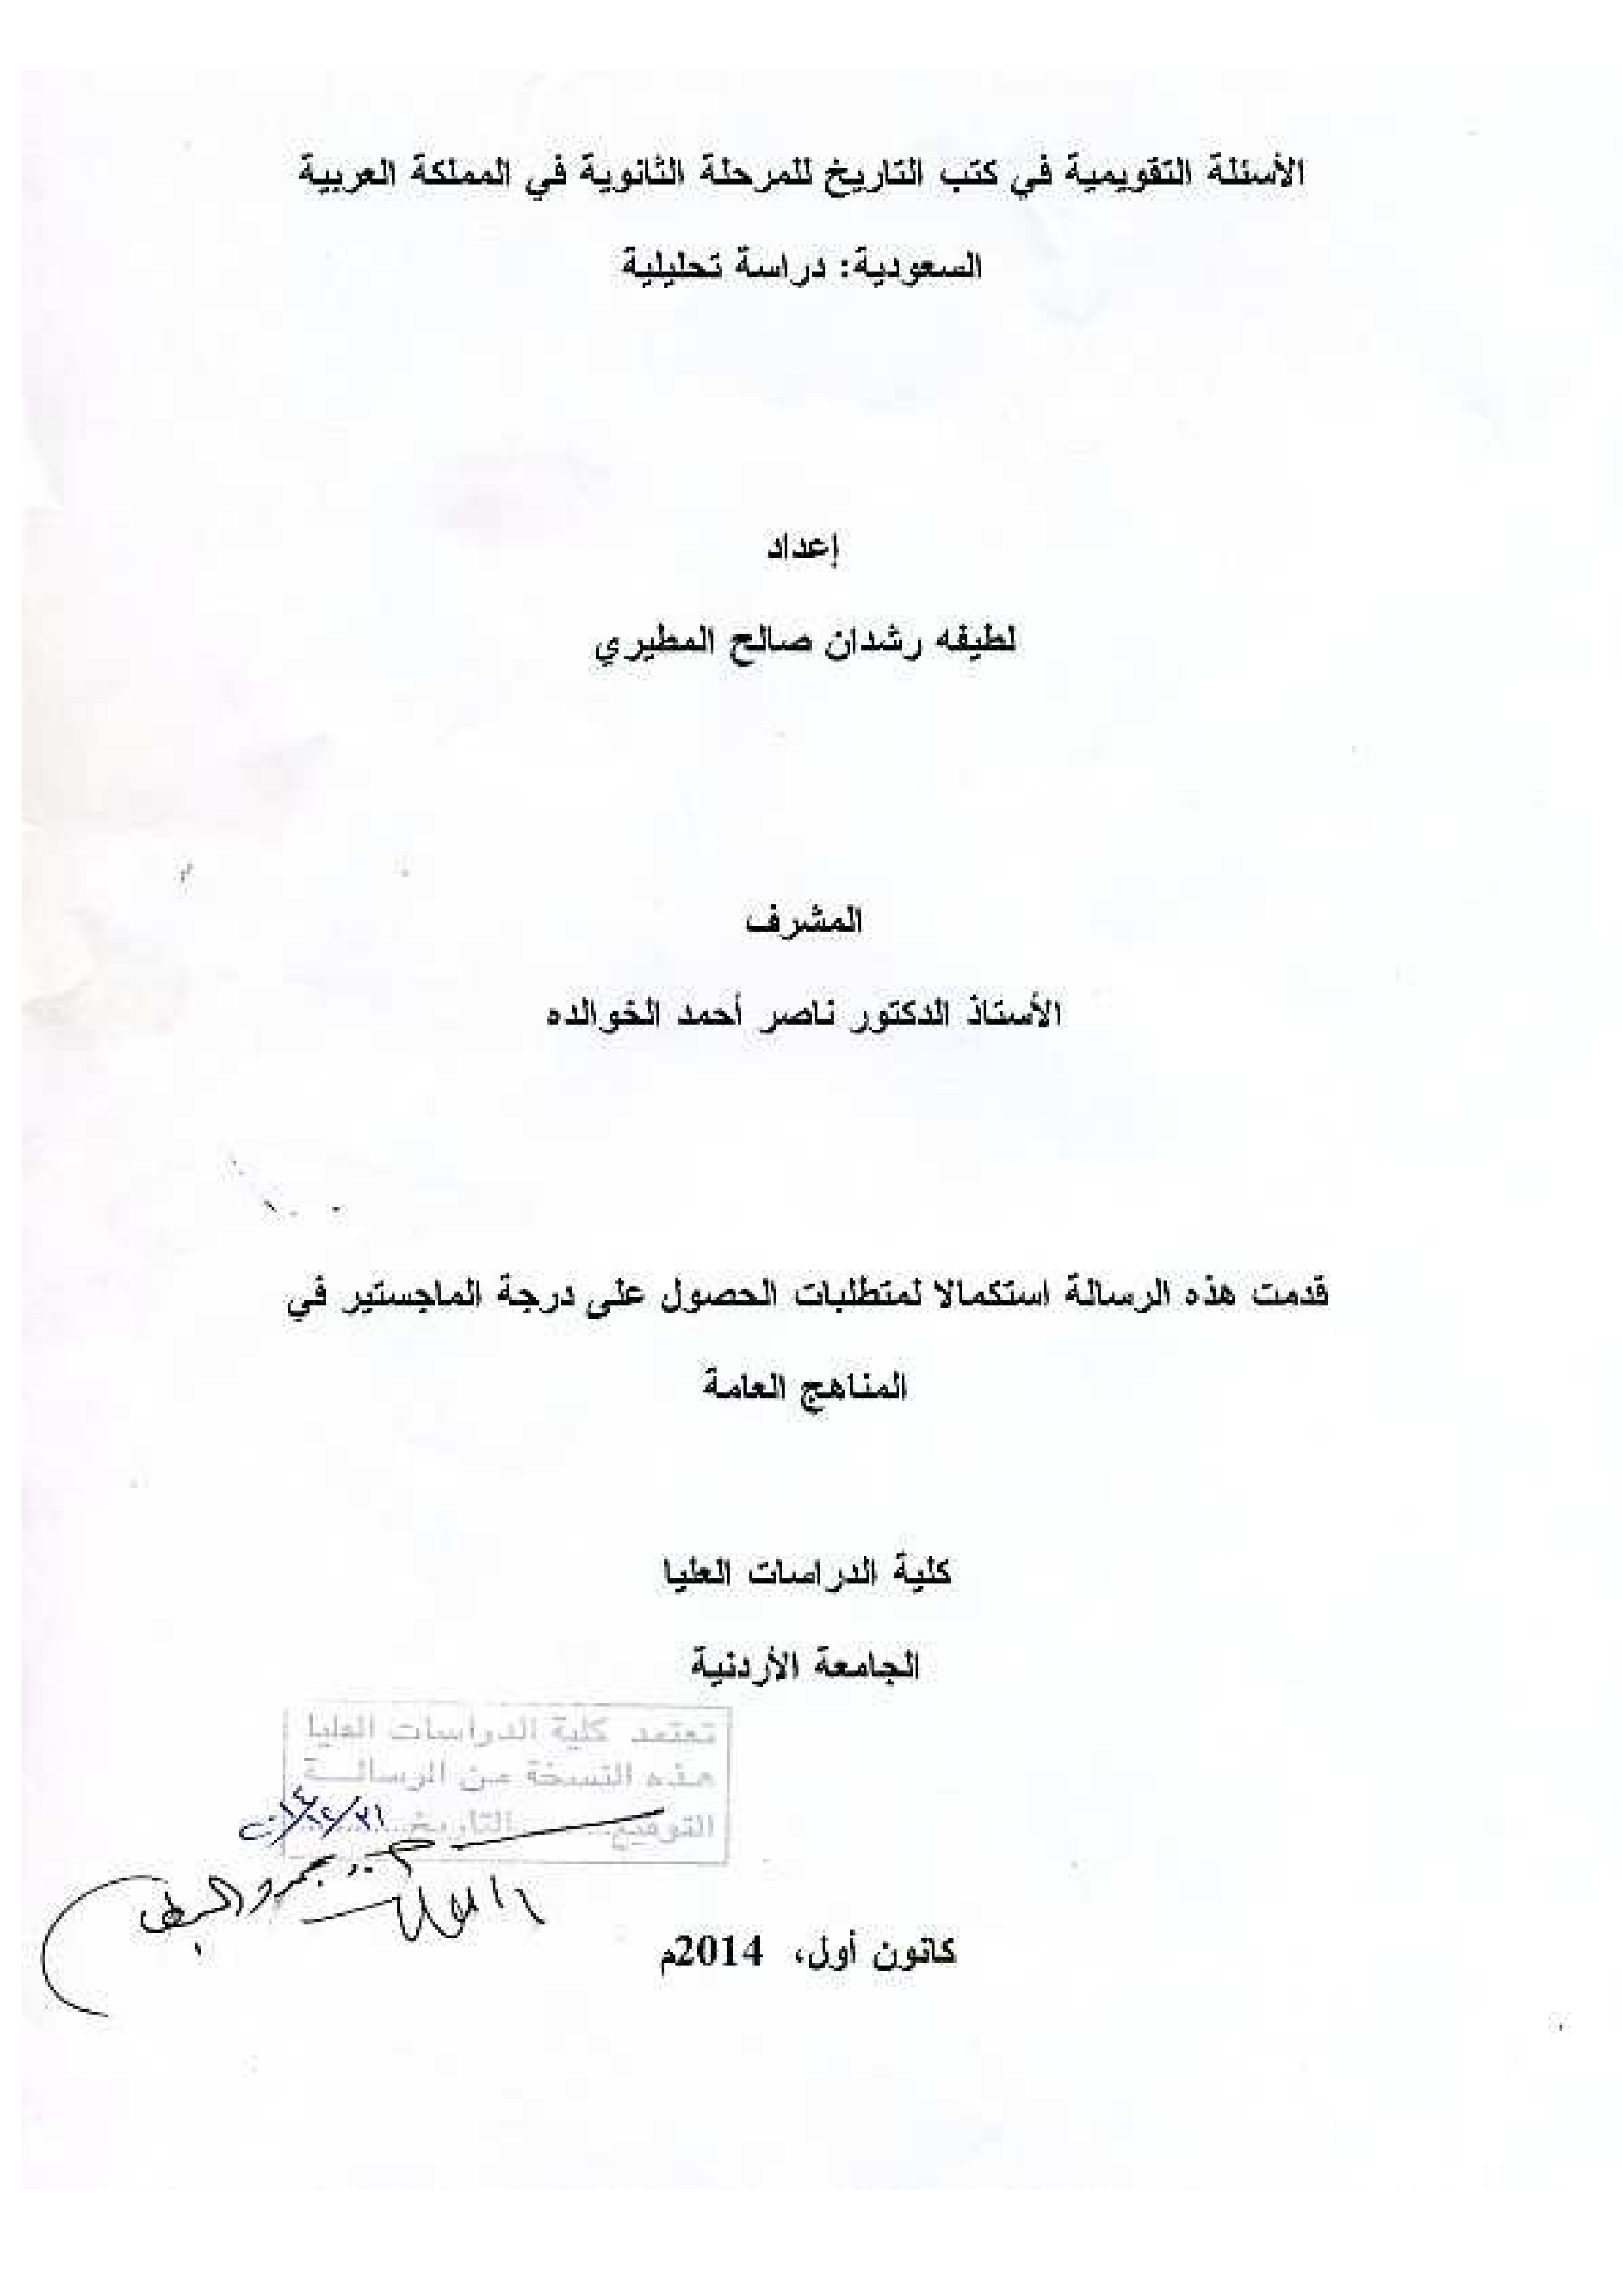 الأسئلة التقويمية في كتب التاريخ للمرحلة الثانوية في المملكة العربية
السعودية: دراسة تحليلية
إعداد
لطيفه رشدان صالح المطيري
المشرف
الأستاذ الدكتور ناصر أحمد الخوالده
قدمت هذه الرسالة استكمالا لمتطلبات الحصول على درجة الماجستير في
المناهج العامة
كلية الدراسات العليا
الجامعة الأردنية
تعتمد كلية الدراسات العليا
هذه النسخة من الرسالة
التوقيع.......... التاريخ..........
كانون أول، 2014م